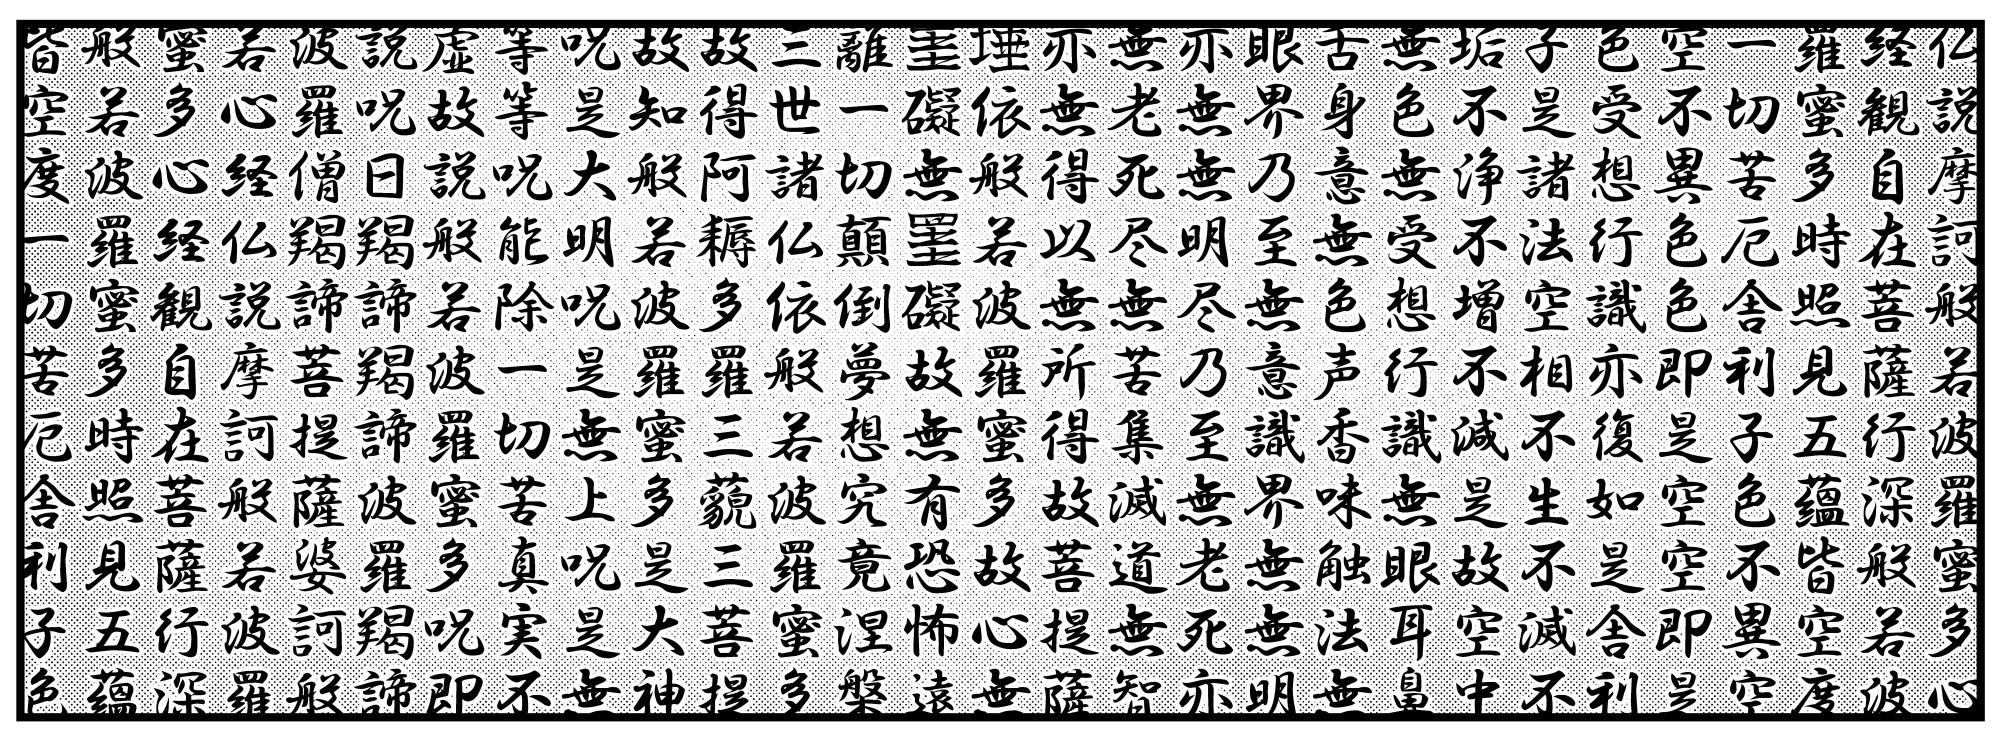 仏説摩訶般若波羅蜜多心
経観自在菩薩行深般若波
羅蜜多時照見五蘊皆空度
一切苦厄舎利子色不異空
空不異色色即是空空即是
色受想行識亦復如是舎利
子是諸法空相不生不滅不
垢不浄不増不減是故空中
無色無受想行識無眼耳鼻
舌身意無色声香味触法無
眼界乃至無意識界無無明
亦無無明尽乃至無老死亦
無老死尽無苦集滅道無智
亦無得以無所得故菩提薩
埵依般若波羅蜜多故心無
罣礙無罣礙故無有恐怖遠
離一切顛倒夢想究竟涅槃
三世諸仏依般若波羅蜜多
故得阿耨多羅三藐三菩提
故知般若波羅蜜多是大神
呪是大明呪是無上呪是無
等等呪能除一切苦真実不
虚故説般若波羅蜜多呪即
説呪日羯諦羯諦波羅羯諦
波羅僧羯諦菩提薩婆訶般
若心経仏説摩訶般若波羅
蜜多心経観自在菩薩行深
般若波羅蜜多時照見五蘊
皆空度一切苦厄舎利子色